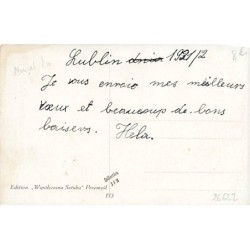 Lublin dnia 1921/2
Je vous envoie mes meilleurs
vœux et beaucoup de bons
baisers. Hela.
Edition „Współczesna Sztuka" Przemyśl